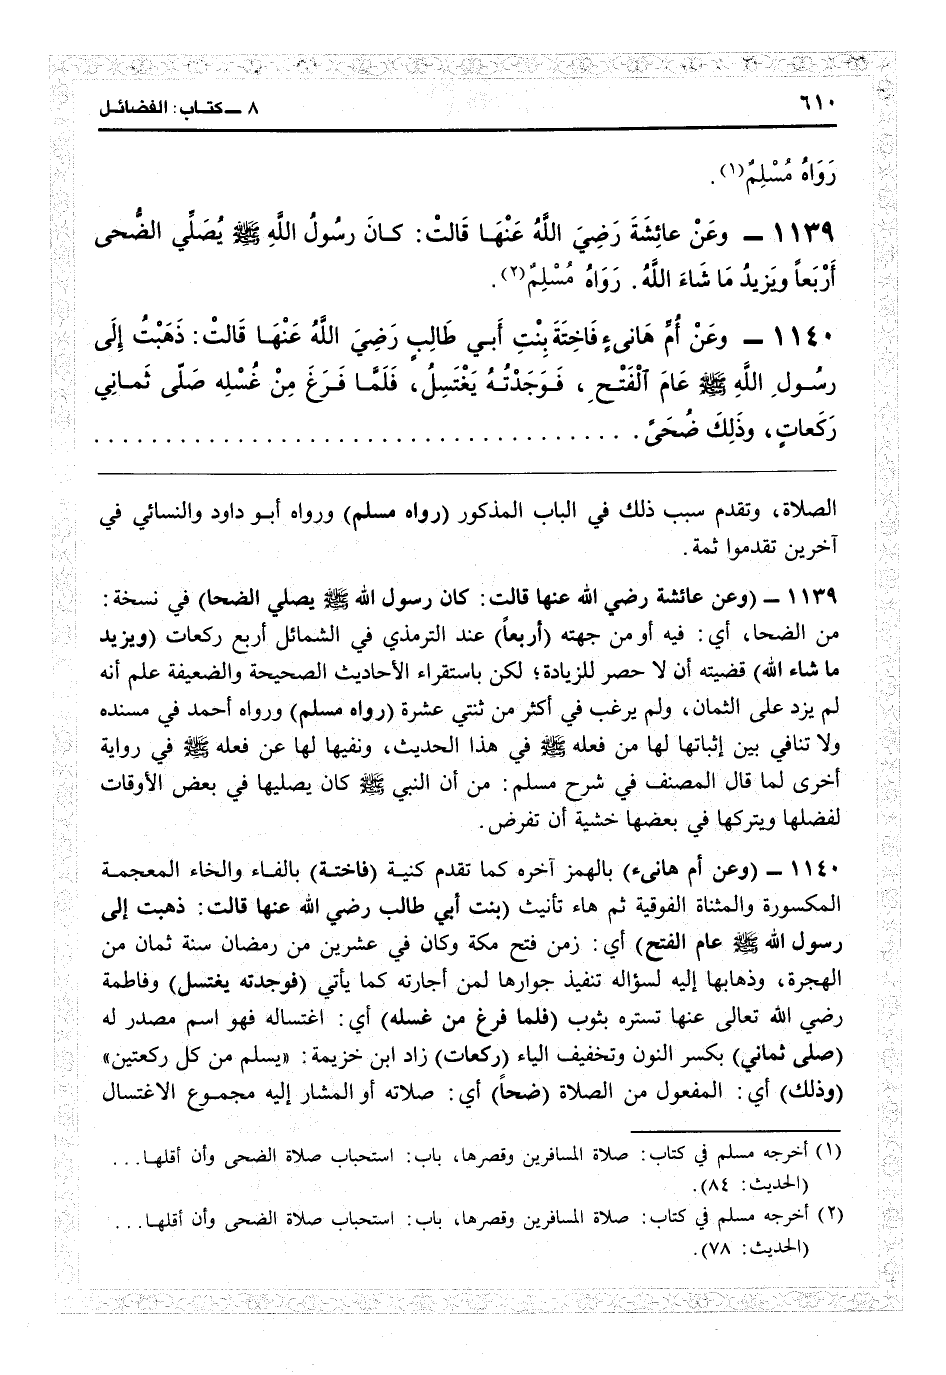 ٦١٠
٨ ـ كتاب: الفضائل
رَوَاهُ مُسْلِمٌ(١).
١١٣٩ ـ وعَنْ عائِشَةَ رَضِيَ اللَّهُ عَنْهَا قَالتْ: كانَ رسُولُ اللَّهِ ﷺ يُصَلِّي الضُّحى
أَرْبَعاً ويَزيدُ مَا شَاءَ اللَّهُ. رَوَاهُ مُسْلِمٌ(٢).
١١٤٠ ـ وعَنْ أُمِّ هَانىءٍ فَاخِتَةَ بِنْتِ أَبي طَالِبٍ رَضِيَ اللَّهُ عَنْهَا قَالَتْ: ذَهَبْتُ إِلَى
رسُولِ اللَّهِ ﷺ عَامَ الْفَتْحِ، فَوَجَدْتُهُ يَغْتَسِلُ، فَلَمَّا فَرَغَ مِنْ غُسْلِه صَلّى ثَمانِي
رَكَعاتٍ، وذَلِكَ ضُحَىً. . . . . . . . . . . . . . . . . . . . . . . . . . . . . . . . . . . . . .
الصلاة، وتقدم سبب ذلك في الباب المذكور (رواه مسلم) ورواه أبو داود والنسائي في
آخرين تقدموا ثمة.
١١٣٩ ـ (وعن عائشة رضي الله عنها قالت: كان رسول الله ﷺ يصلي الضحا) في نسخة:
من الضحا، أي: فيه أو من جهته (أربعاً) عند الترمذي في الشمائل أربع ركعات (ويزيد
ما شاء الله) قضيته أن لا حصر للزيادة؛ لكن باستقراء الأحاديث الصحيحة والضعيفة علم أنه
لم يزد على الثمان، ولم يرغب في أكثر من ثنتي عشرة (رواه مسلم) ورواه أحمد في مسنده
ولا تنافي بين إثباتها لها من فعله ﷺ في هذا الحديث، ونفيها لها عن فعله ﷺ في رواية
أخرى لما قال المصنف في شرح مسلم: من أن النبي ﷺ كان يصليها في بعض الأوقات
لفضلها ويتركها في بعضها خشية أن تفرض.
١١٤٠ ـ (وعن أم هانىء) بالهمز آخره كما تقدم كنية (فاختة) بالفاء والخاء المعجمة
المكسورة والمثناة الفوقية ثم هاء تأنيث (بنت أبي طالب رضي الله عنها قالت: ذهبت إلى
رسول الله ﷺ عام الفتح) أي: زمن فتح مكة وكان في عشرين من رمضان سنة ثمان من
الهجرة، وذهابها إليه لسؤاله تنفيذ جوارها لمن أجارته كما يأتي (فوجدته يغتسل) وفاطمة
رضي الله تعالى عنها تستره بثوب (فلما فرغ من غسله) أي: اغتساله فهو اسم مصدر له
(صلى ثماني) بكسر النون وتخفيف الياء (ركعات) زاد ابن خزيمة: «يسلم من كل ركعتين»
(وذلك) أي: المفعول من الصلاة (ضحاً) أي: صلاته أو المشار إليه مجموع الاغتسال
(١) أخرجه مسلم في كتاب: صلاة المسافرين وقصرها، باب: استحباب صلاة الضحى وأن أقلها...
(الحديث: ٨٤).
(٢) أخرجه مسلم في كتاب: صلاة المسافرين وقصرها، باب: استحباب صلاة الضحى وأن أقلها...
(الحديث: ٧٨).